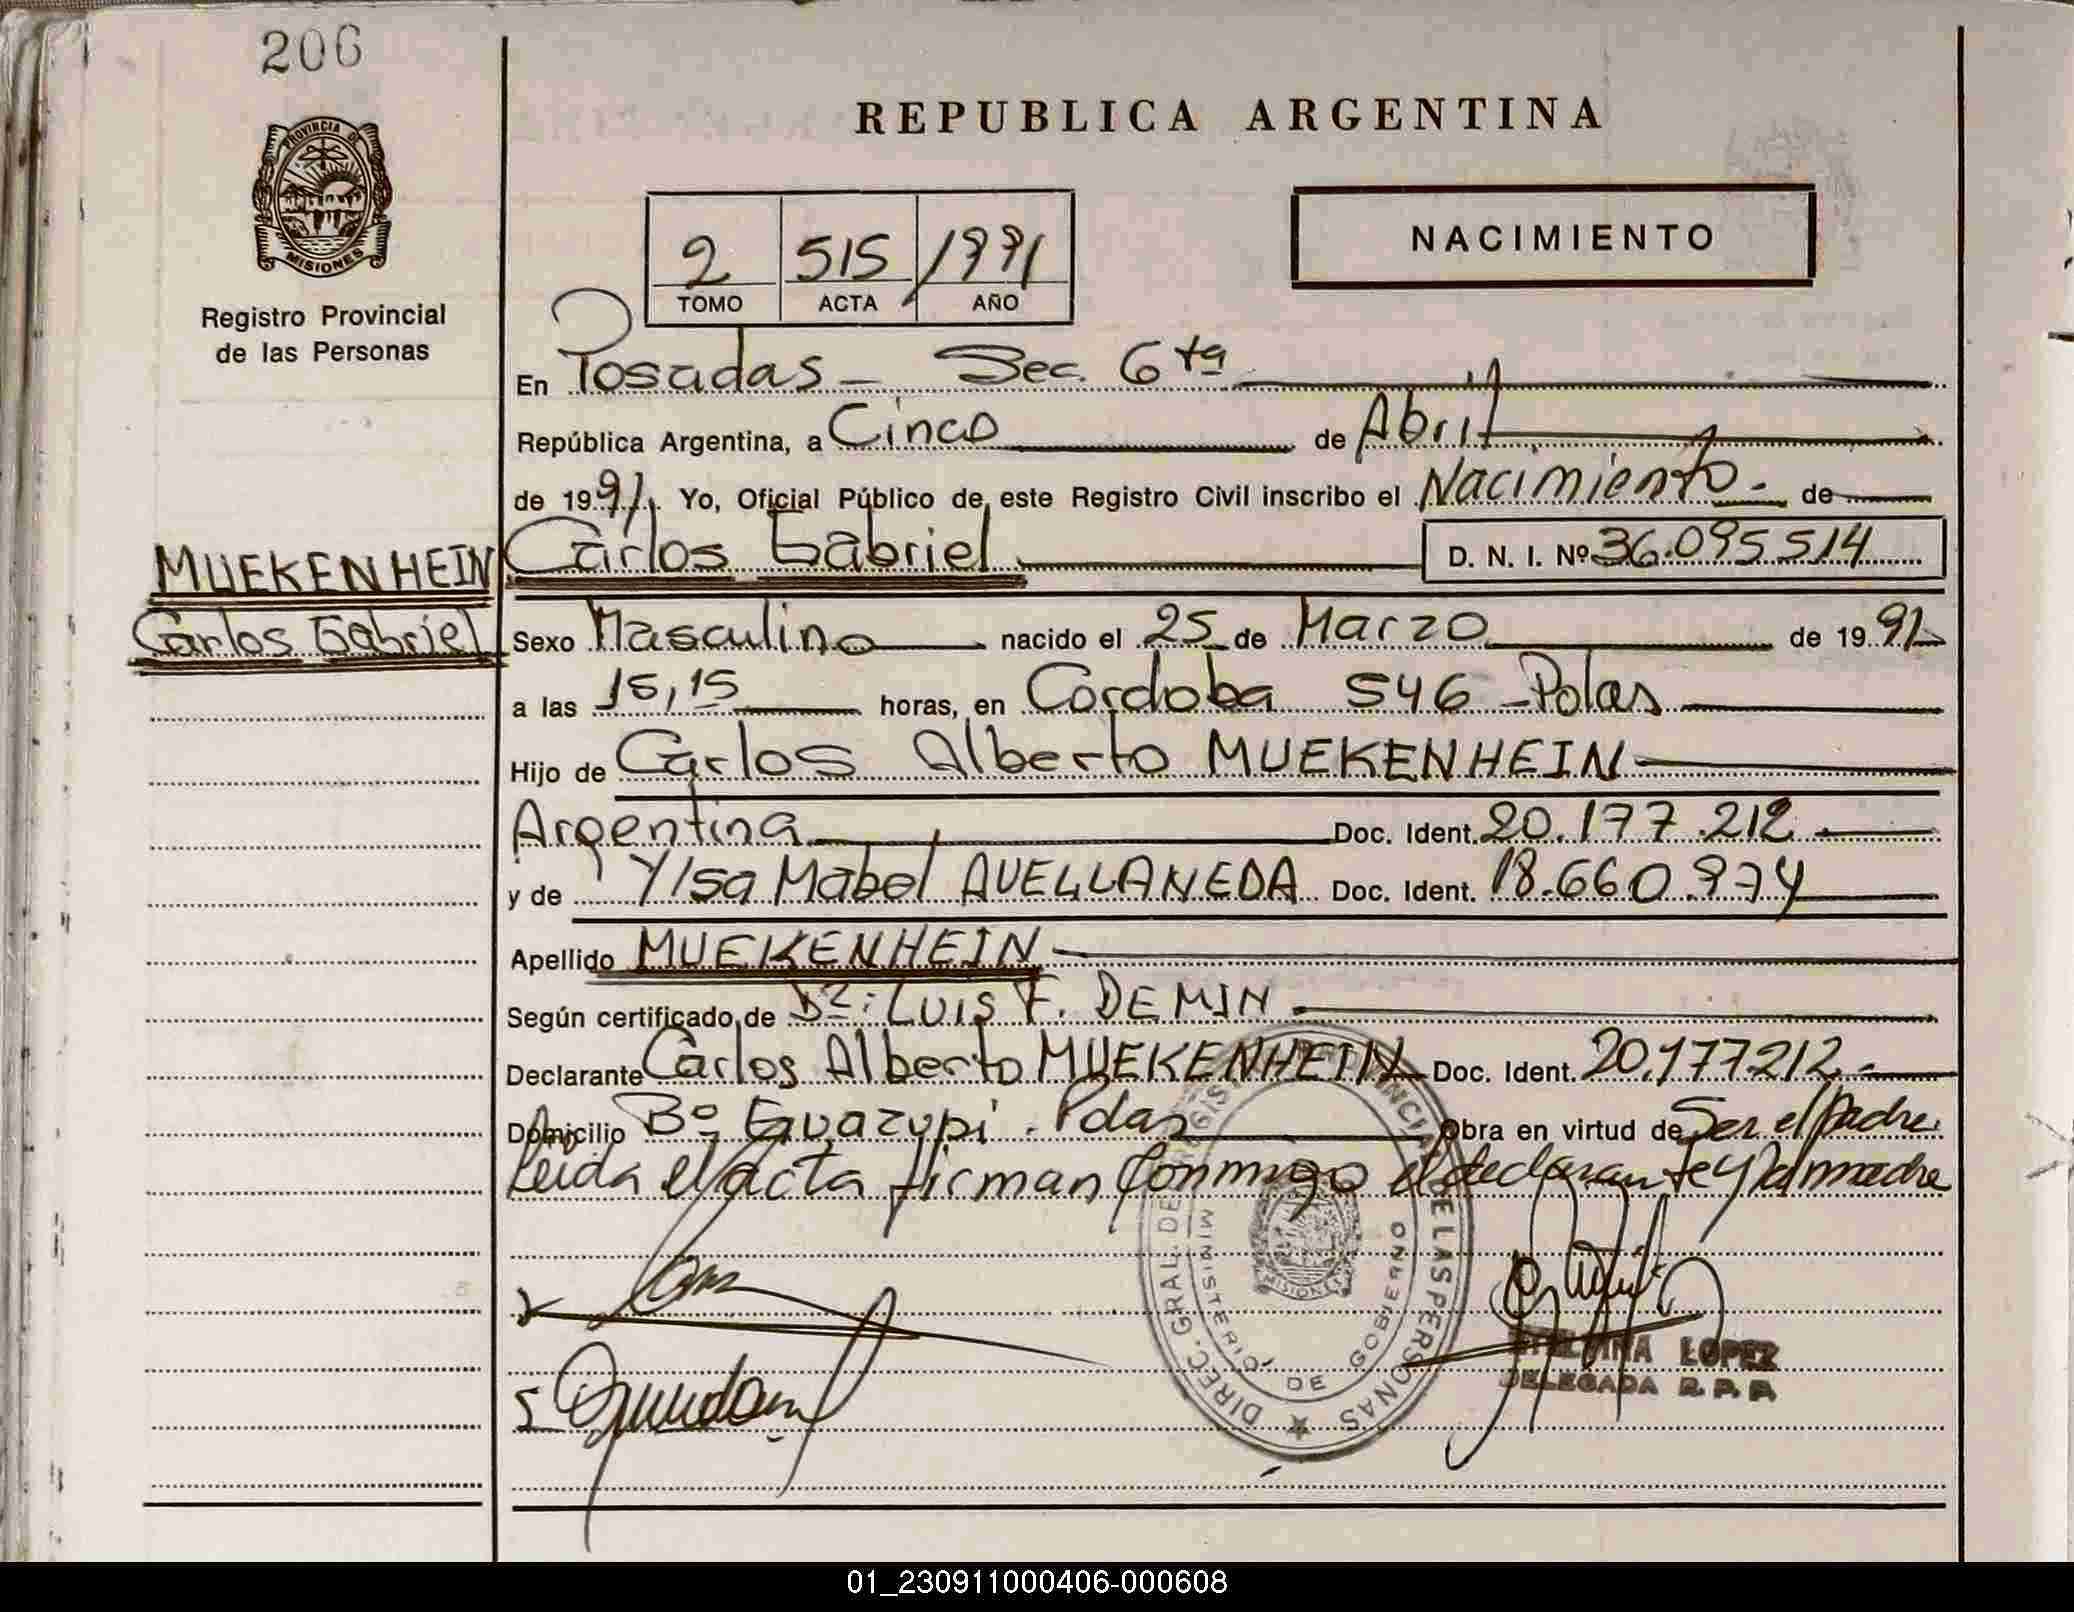 206
REPUBLICA ARGENTINA
PROVINCIA DE
MISIONES
Registro Provincial
de las Personas
2 515 1991
TOMO ACTA AÑO
NACIMIENTO
En Posadas - Sec. 6ta
República Argentina, a Cinco de Abril
de 1991. Yo, Oficial Público de este Registro Civil inscribo el Nacimiento - de
MUEKENHEIN
Carlos Gabriel
Carlos Gabriel D. N. I. Nº 36.095514
Sexo Masculino nacido el 25 de Marzo de 1991
a las 15,15 horas, en Cordoba 546 - Pdas
Hijo de Carlos Alberto MUEKENHEIN
Argentina Doc. Ident. 20.177.212
y de Ylsa Mabel AVELLANEDA Doc. Ident. 18.660.974
Apellido MUEKENHEIN
Según certificado de Dr: LUIS F. DEMIN
Declarante Carlos Alberto MUEKENHEIN Doc. Ident. 20.177212.-
Domicilio Bº Guazupi - Pdas Obra en virtud de Ser el padre.
Leida el acta firman conmigo el declarante y la madre
DIREC. GRAL. DE REGISTRO PROVINCIAL DE LAS PERSONAS
MINISTERIO DE GOBIERNO
MISIONES
LOPEZ
DELEGADA R. P. P.
01_230911000406-000608